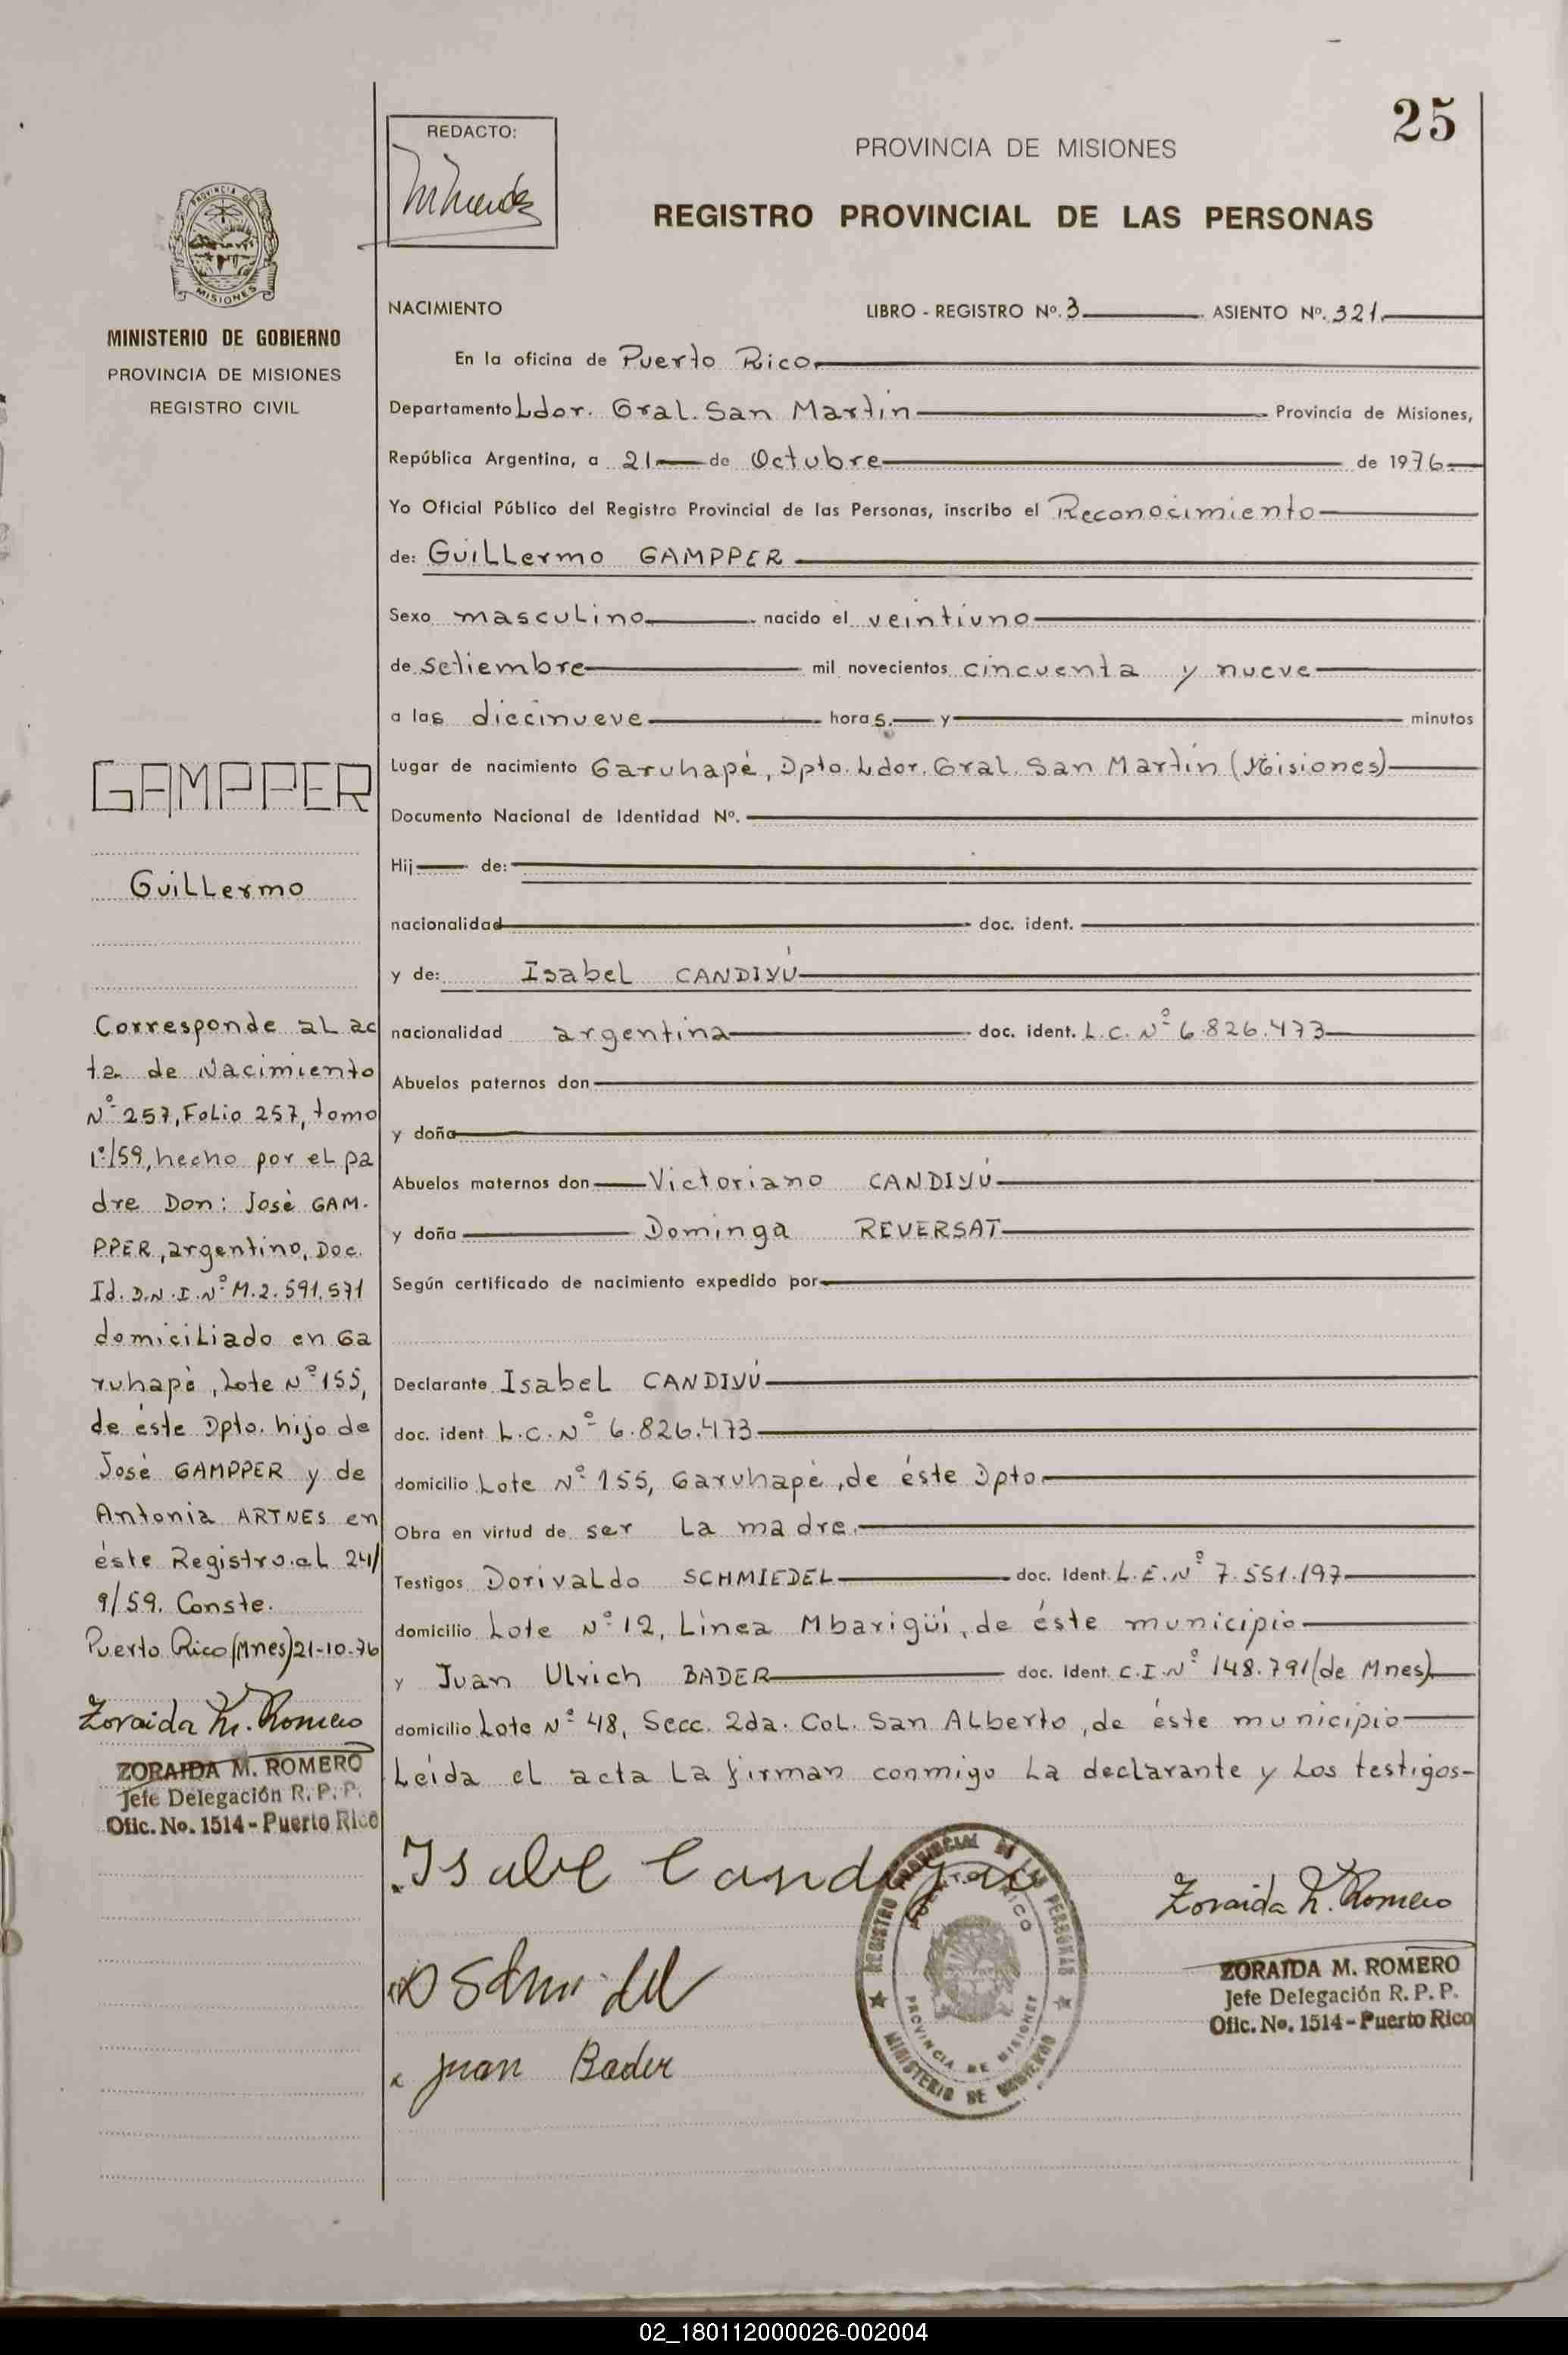 25
REDACTO:
PROVINCIA DE MISIONES
REGISTRO PROVINCIAL DE LAS PERSONAS
PROVINCIA DE
MISIONES
MINISTERIO DE GOBIERNO
PROVINCIA DE MISIONES
REGISTRO CIVIL
GAMPPER
Guillermo
Corresponde al ac
ta de Nacimiento
Nº 257, Folio 257, tomo
1º/59, hecho por el pa
dre Don: José GAM-
PPER, argentino, Doc.
Id. D.N.I. Nº M. 2.591.571
domiciliado en Ga
ruhapé, Lote Nº 155,
de éste Dpto. hijo de
José GAMPPER y de
Antonia ARTNES en
éste Registro al 24/
9/59. Conste.
Puerto Rico (Mnes) 21-10-76
Zoraida M. Romero
ZORAIDA M. ROMERO
Jefe Delegación R. P. P.
Ofic. No. 1514 - Puerto Rico
NACIMIENTO LIBRO - REGISTRO Nº. 3 ASIENTO Nº. 321
En la oficina de Puerto Rico
Departamento Ldor. Gral. San Martín Provincia de Misiones,
República Argentina, a 21 de Octubre de 1976
Yo Oficial Público del Registro Provincial de las Personas, inscribo el Reconocimiento
de: Guillermo GAMPPER
Sexo masculino nacido el veintiuno
de setiembre mil novecientos cincuenta y nueve
a las diecinueve horas. y minutos
Lugar de nacimiento Garuhapé, Dpto. Ldor. Gral. San Martín (Misiones)
Documento Nacional de Identidad Nº.
Hij de:
nacionalidad doc. ident.
y de: Isabel CANDIYÚ
nacionalidad argentina doc. ident. L.C. Nº 6.826.473
Abuelos paternos don
y doña
Abuelos maternos don Victoriano CANDIYÚ
y doña Dominga REVERSAT
Según certificado de nacimiento expedido por
Declarante Isabel CANDIYÚ
doc. ident L.C. Nº 6.826.473
domicilio Lote Nº 155, Garuhapé, de éste Dpto
Obra en virtud de ser La madre.
Testigos Dorivaldo SCHMIEDEL doc. Ident. L.E. Nº 7.551.197
domicilio Lote Nº 12, Línea Mbarigüí, de éste municipio
y Juan Ulrich BADER doc. Ident. C.I. Nº 148.791 (de Mnes)
domicilio Lote Nº 48, Secc. 2da. Col. San Alberto, de éste municipio
Leída el acta la firman conmigo la declarante y los testigos-
Juan Bader
REGISTRO PROVINCIAL DE LAS PERSONAS
PUERTO RICO
PROVINCIA DE MISIONES
MINISTERIO DE GOBIERNO
Zoraida M. Romero
ZORAIDA M. ROMERO
Jefe Delegación R. P. P.
Ofic. No. 1514 - Puerto Rico
02_180112000026-002004